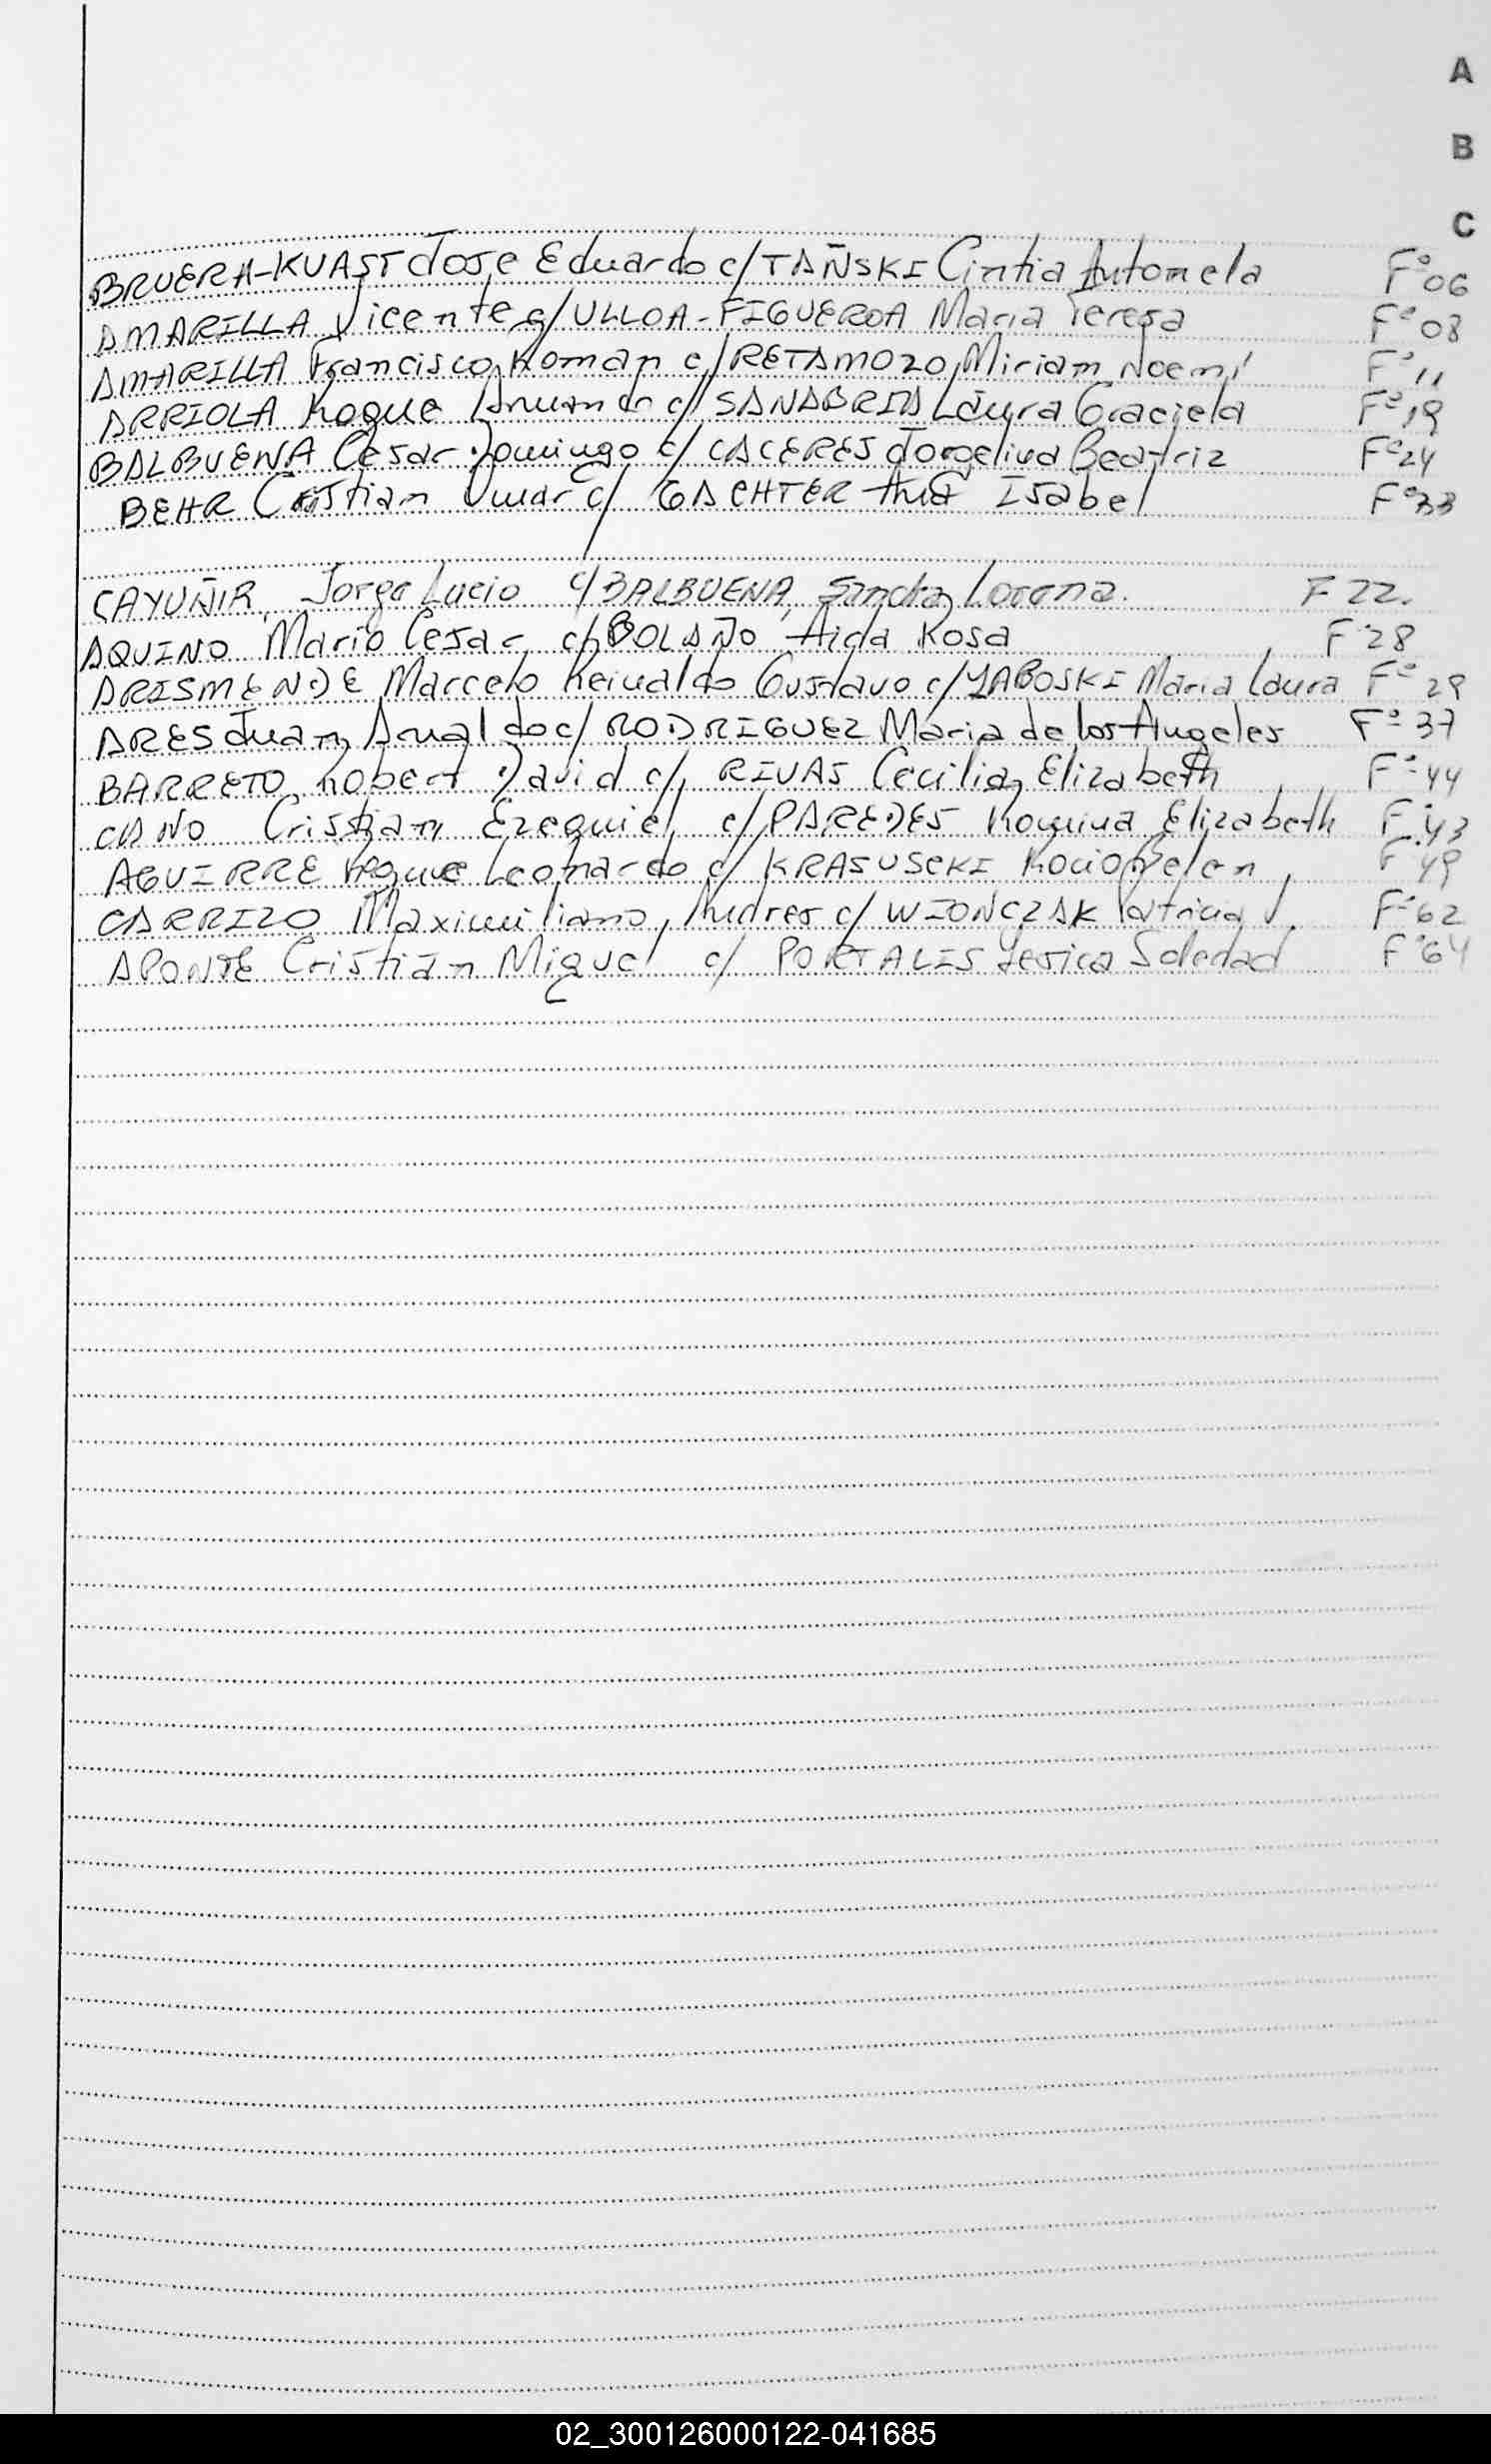 A
B
C
BRUERA-KUAST Jose Eduardo c/ TAÑSKI Cintia Antonela F° 06
AMARILLA Vicente c/ ULLOA-FIGUEROA Maria Teresa F° 08
AMARILLA Francisco Roman c/ RETAMOZO Miriam Noemi F° 11
ARRIOLA Roque Armando c/ SANABRIA Laura Graciela F° 19
BALBUENA Cesar Domingo c/ CACERES Jorgelina Beatriz F° 24
BEHR Cristian Omar c/ GACHTER Ana Isabel F° 33
CAYUÑIR Jorge Lucio c/ BALBUENA, Sandra Lorena. F 22.
AQUINO Mario Cesar c/ BOLAÑO Aida Rosa F° 28
ARISMENDE Marcelo Reinaldo Gustavo c/ YABOSKI Maria Laura F° 29
ARES Juan Arnaldo c/ RODRIGUEZ Maria de los Angeles F° 37
BARRETO Robert David c/ RIVAS Cecilia Elizabeth F° 44
CANO Cristian Ezequiel c/ PAREDES Romina Elizabeth F° 43
AGUIRRE Roque Leonardo c/ KRASUSCKI Rocio Belen F 49
CARRIZO Maximiliano Andres c/ WIONCZAK Patricia J. F° 62
APONTE Cristian Miguel c/ PORTALIS Jesica Soledad F° 64
02_300126000122-041685